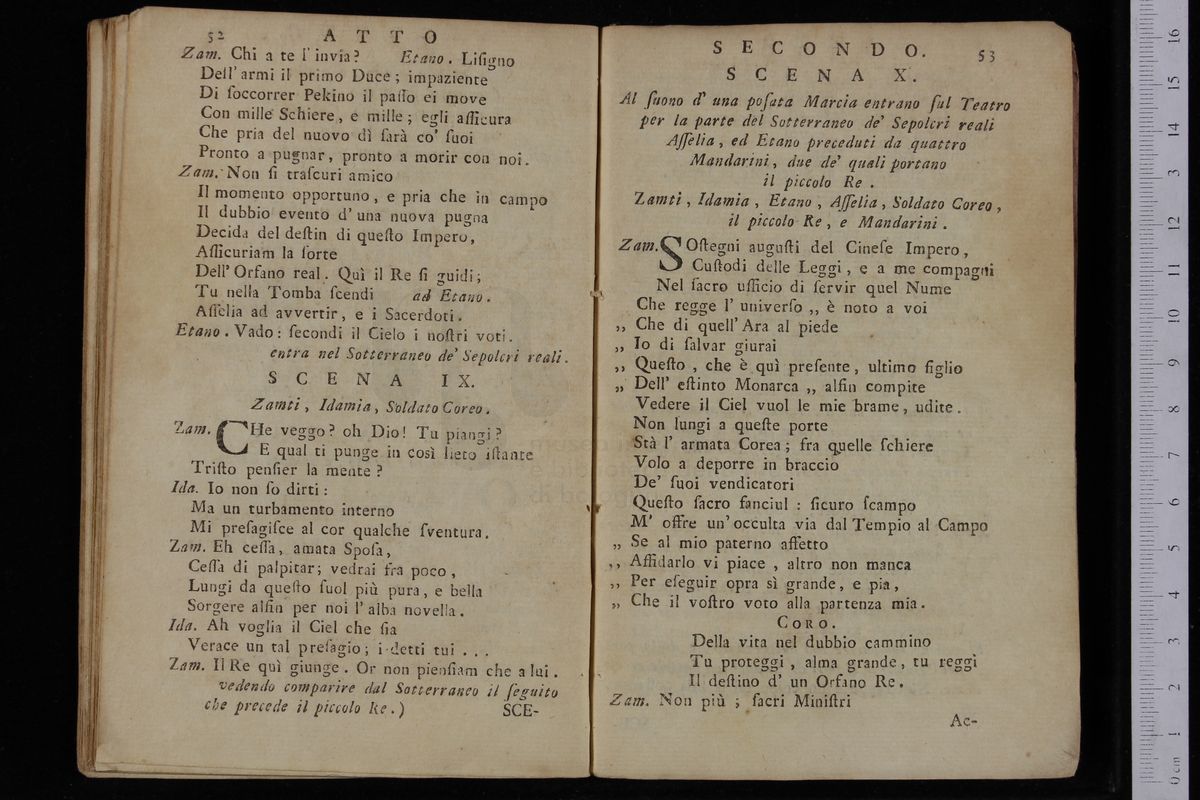 52 A T T O
Zam. Chi a te l'invia? Etano. Liſigno
Dell'armi il primo Duce; impaziente
Di ſoccorrer Pekino il paſſo ei move
Con mille Schiere, e mille; egli aſſicura
Che pria del nuovo dì ſarà co' ſuoi
Pronto a pugnar, pronto a morir con noi.
Zam. Non ſi traſcuri amico
Il momento opportuno, e pria che in campo
Il dubbio evento d'una nuova pugna
Decida del deſtin di queſto Impero,
Aſſicuriam la ſorte
Dell'Orfano real. Quì il Re ſi guidi;
Tu nella Tomba ſcendi ad Etano.
Aſſelia ad avvertir, e i Sacerdoti.
Etano. Vado: ſecondi il Cielo i noſtri voti.
entra nel Sotterraneo de' Sepolcri reali.
S C E N A IX.
Zamti, Idamia, Soldato Coreo.
Zam. CHe veggo? oh Dio! Tu piangi?
E qual ti punge in così lieto iſtante
Triſto penſier la mente?
Ida. Io non ſo dirti:
Ma un turbamento interno
Mi preſagiſce al cor qualche ſventura.
Zam. Eh ceſſa, amata Spoſa,
Ceſſa di palpitar; vedrai fra poco,
Lungi da queſto ſuol più pura, e bella
Sorgere alfin per noi l'alba novella.
Ida. Ah voglia il Ciel che ſia
Verace un tal preſagio; i detti tui ...
Zam. Il Re quì giunge. Or non pienſiam che a lui.
vedendo comparire dal Sotterraneo il ſeguito
che precede il piccolo Re.)
SCE-
SECONDO. 53
S C E N A X.
Al ſuono d' una poſata Marcia entrano ſul Teatro
per la parte del Sotterraneo de' Sepolcri reali
Aſſelia, ed Etano preceduti da quattro
Mandarini, due de' quali portano
il piccolo Re.
Zamti, Idamia, Etano, Aſſelia, Soldato Coreo,
il piccolo Re, e Mandarini.
Zam. SOſtegni auguſti del Cineſe Impero,
Cuſtodi delle Leggi, e a me compagni
Nel ſacro uſſicio di ſervir quel Nume
Che regge l' univerſo ,, è noto a voi
,, Che di quell'Ara al piede
,, Io di ſalvar giurai
,, Queſto, che è quì preſente, ultimo figlio
,, Dell' eſtinto Monarca ,, alfin compite
Vedere il Ciel vuol le mie brame, udite.
Non lungi a queſte porte
Stà l' armata Corea; fra quelle ſchiere
Volo a deporre in braccio
De' ſuoi vendicatori
Queſto ſacro fanciul: ſicuro ſcampo
M' offre un'occulta via dal Tempio al Campo
,, Se al mio paterno affetto
,, Affidarlo vi piace, altro non manca
,, Per eſeguir opra sì grande, e pia,
,, Che il voſtro voto alla partenza mia.
CORO.
Della vita nel dubbio cammino
Tu proteggi, alma grande, tu reggi
Il deſtino d' un Orfano Re.
Zam. Non più; ſacri Miniſtri
Ac-
0 cm 1 2 3 4 5 6 7 8 9 10 11 12 13 14 15 16